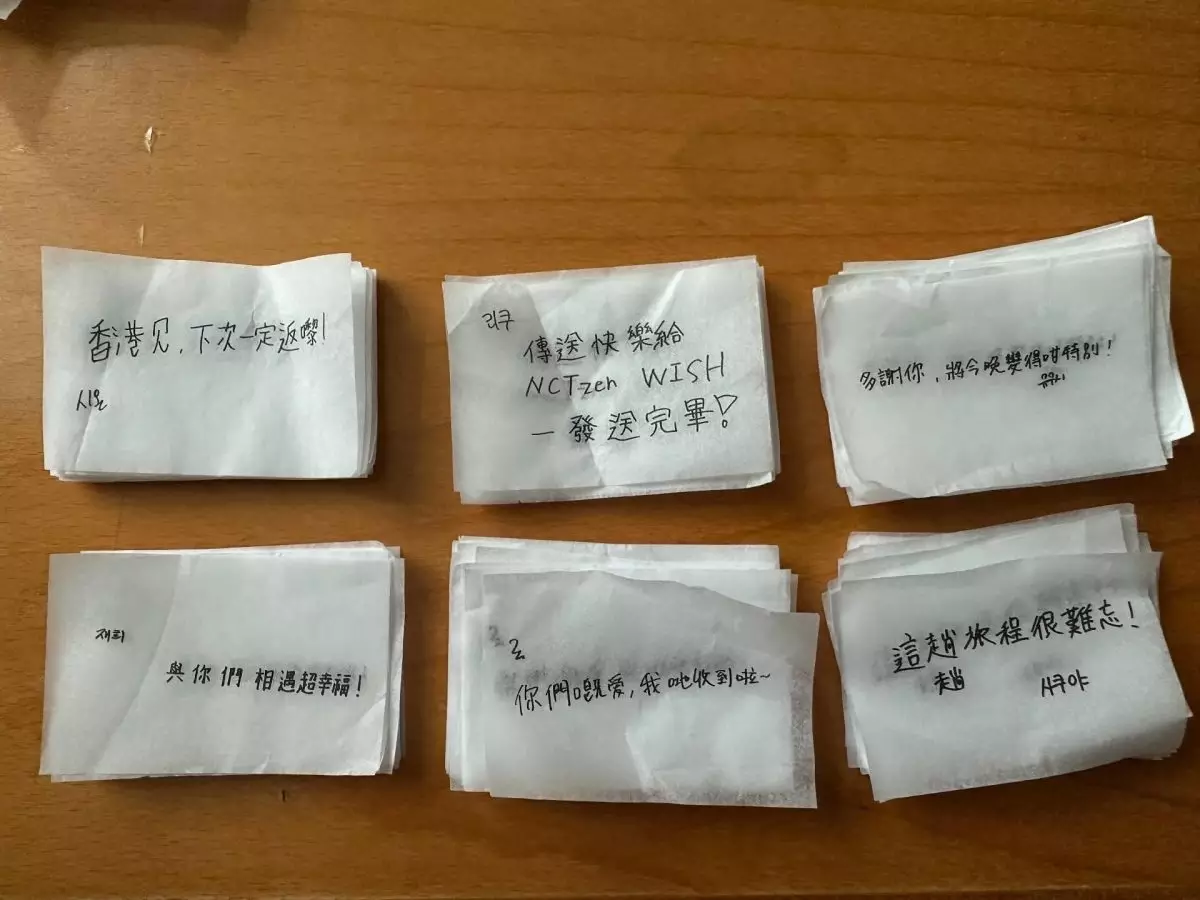 香港见, 下次一定返嚟!
시온
리쿠
傳送快樂給
NCTzen WISH
一發送完畢!
多謝你, 將今晚變得咁特別!
재희
與你們相遇超幸福!
료
你們嘅愛, 我哋收到啦~
這趟旅程很難忘!
趟 사쿠야